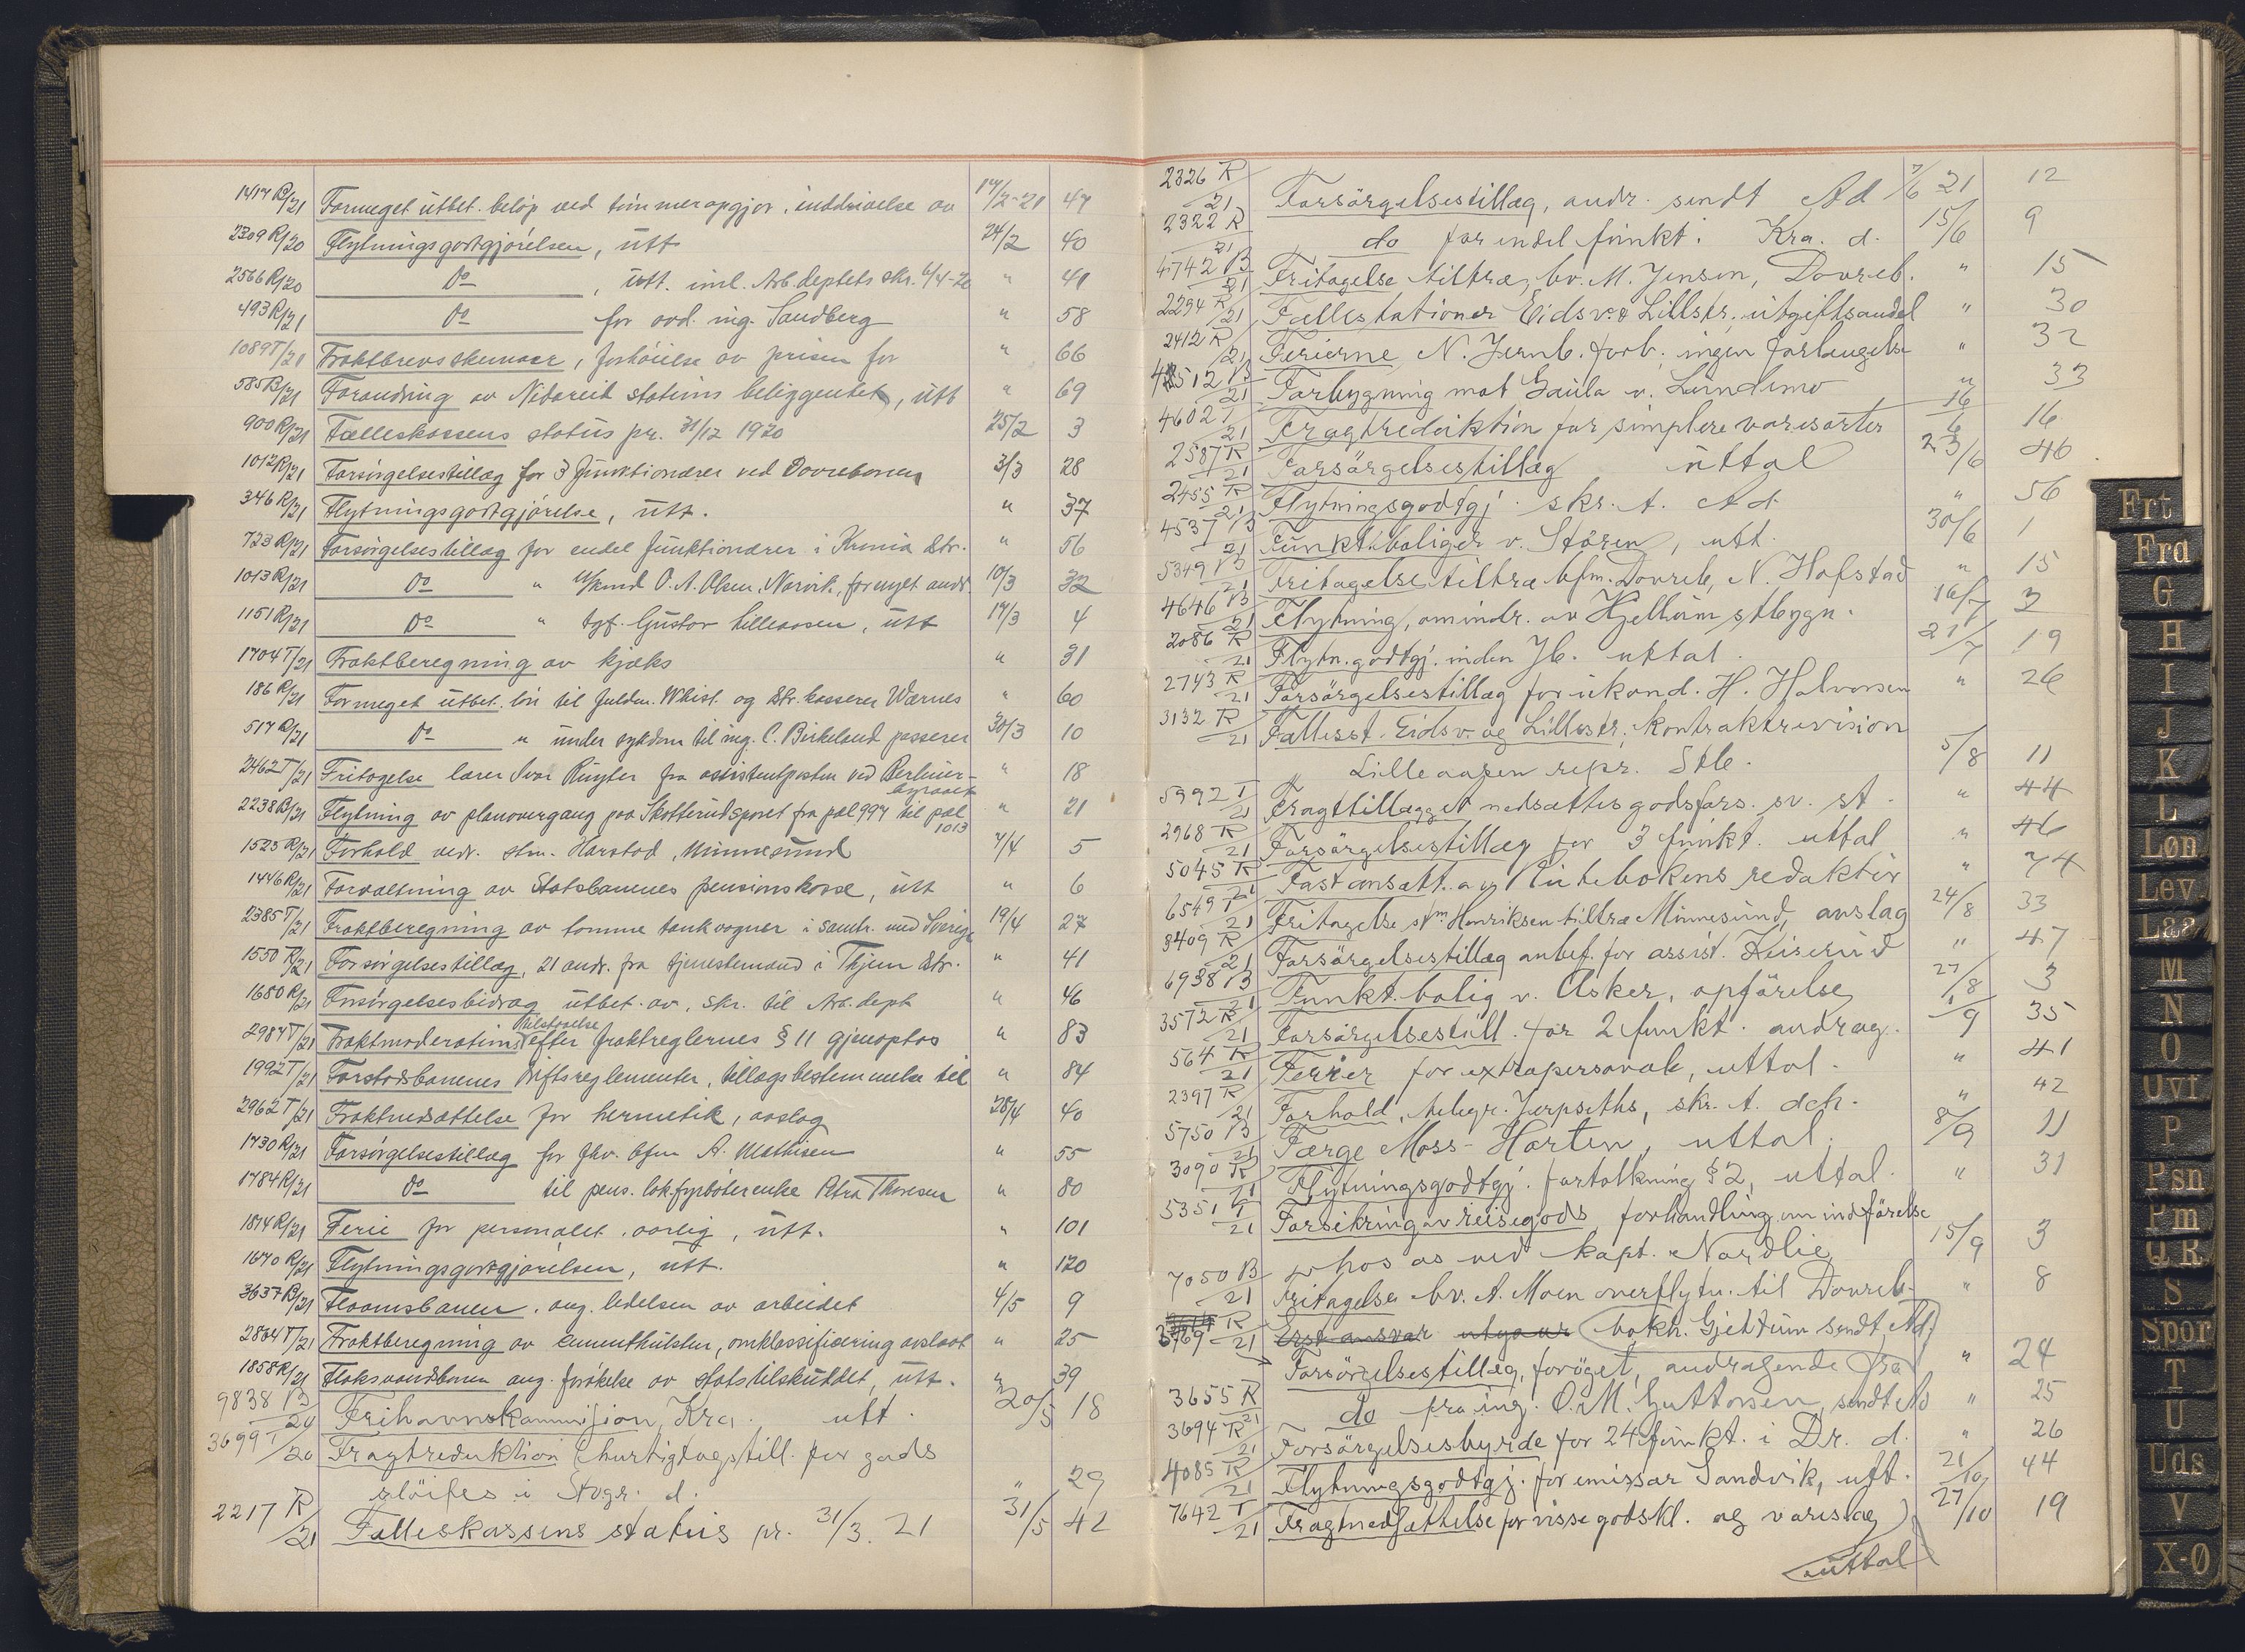 1417 R/21 Formeget utbet. beløp ved tømmeropgjør, inddrivelse av 17/2-21 47
2309 R/20 Flytningsgodtgjørelsen, utt. 24/2 40
2566 R/20 Do , utt. inkl. Arb.deptets skr. 6/4-20 " 41
493 R/21 Do for avd. ing. Sandberg " 58
1089 T/21 Fraktbrevsskemaer, forhøielse av prisen for " 66
585 B/21 Forandring av Nidareid stations beliggenhet, utt " 69
900 R/21 Fælleskassens status pr. 31/12 1920 25/2 3
1012 R/21 Forsørgelsestillæg for 3 funktionærer ved Dovrebanen 3/3 28
346 R/21 Flytningsgodtgjørelse, utt. " 37
723 R/21 Forsørgelsestillæg for endel funktionærer i Krania dtr. " 56
1013 R/21 Do " O. A. Olsen, Narvik, fornyet andr. 10/3 32
1151 R/21 Do " tgf. Gustav Lilleaasen, utt 17/3 4
1704 T/21 Fraktberegning av kjæks " 31
186 R/21 Formeget utbet. løn til fuldm. Whist. og dtr. kasserer Wærnes " 60
517 R/21 Do " under sykdom til ing. C. Birkeland passerer 30/3 10
2462 T/21 Fritagelse lærer Ivar Ruyter fra assistentposten ved Berliner- " 18
byraaet
2238 B/21 Flytning av planovergang paa Skotterudsporet fra pæl 997 til pæl " 21
1013
1523 R/21 Forhold vedr. stm. Harstad, Minnesund 7/4 5
1446 R/21 Forvaltning av Statsbanenes pensionskasse, utt " 6
2385 T/21 Fraktberegning av tomme tankvogner i samtr. med Sverige 19/4 27
1550 R/21 Forsørgelsestillæg, 21 andr. fra tjenestemænd i Thjem dtr. " 41
1680 R/21 Forsørgelsesbidrag utbet. av, skr. til Arb. dept " 46
tilstaaelse
2987 T/21 Fraktmoderations efter fraktreglernes § 11 gjenoptas " 83
1992 T/21 Forstadsbanenes Driftsreglementer, tillægsbestemmelse til " 84
2962 T/21 Fraktnedsættelse for hermetik, avslag 28/4 40
1730 R/21 Forsørgelsestillæg for fhv. bfm A. Mathisen " 55
1784 R/21 Do til pens. lokfyrbøterenke Petra Thoresen " 80
1814 R/21 Ferie for personalet, aarlig, utt. " 101
1670 R/21 Flytningsgodtgjørelsen, utt. " 120
3637 B/21 Flaamsbanen, ang. ledelsen av arbeidet 4/5 9
2864 T/21 Fraktberegning av cementhulsten, omklassificering avslaat " 25
1858 R/21 Floksvandbanen ang. forøkelse av statstilskuddet, utt. " 39
9838 B/20 Frihavnskommisjon, Kra. utt. 20/5 18
3699 T/20 Fragtreduktion (hurtigtogstill. for gods
sløifes i Stvgr. d. " 29
2217 R/21 Fælleskassens status pr. 31/3. 21 31/5 42
2326 R/21 Forsörgelsestillæg, andr. sendt Ad 7/6 21 12
2322 R/21 do for endel funkt. i Kra. d. 15/6 9
4742 B/21 Fritagelse tiltræ, bv. M. Jensen, Dovreb. " 15
2294 R/21 Fællestationer Eidsv. & Lillstr. utgiftsandel " 30
2412 R/21 Ferierne N. Jernb. forb. ingen forlængelse " 32
4512 B/21 Forbygning mot Gaula v. Lundemo " 33
4602 T/21 Fragtreduktion for simplere varesorter 16/6 16
2587 R/21 Forsörgelsestillæg uttal 23/6 46
2455 R/21 Flytningsgodtgj. skr. A. Ad. " 56
4537 B/21 Funkt.boliger v. Stören, utt. 30/6 1
5349 B/21 Fritagelse tiltræ bfm. Dovreb, N. Hofstad " 15
4646 B/21 Flytning, omindr. av Hjellum stbygn. 16/7 3
2086 R/21 Flytn.godtgj. inden Jb. uttal. 21/7 19
2743 R/21 Forsörgelsestillæg for ukond. H. Halvorsen " 26
3132 R/21 Fællesst. Eidsv. og Lillestr. kontraktrevision
Lilleaasen repr. Stb. 5/8 11
5992 T/21 Fragttillægget nedsættes godsfors. sv. st. " 44
2968 R/21 Forsörgelsestillæg for 3 funkt. uttal " 46
5045 R/21 Fast ansætt. av Rutebokens redaktör " 74
6549 T/21 Fritagelse stm Henriksen tiltræ Minnesund, avslag 24/8 33
8409 R/21 Forsörgelsestillæg anbef. for assist. Keiserud " 47
6938 B/21 Funkt.bolig v. Asker, opförelse 27/8 3
3572 R/21 Forsörgelsestill. for 2 funkt. andrag. 1/9 35
564 R/21 Ferier for extrapersonale, uttal. " 41
2397 R/21 Forhold, telegr. Jerpseths, skr. A. dep. " 42
5750 B/21 Færge Moss-Horten, uttal. 8/9 11
3090 R/21 Flytningsgodtgj. fortolkning § 2, uttal. " 31
5351 T/21 Forsikring av reisegods, forhandling om indförelse
hos os ved kapt. Nordlie 15/9 3
7050 B/21 Fritagelse bv. A. Moen overflytn. til Dovreb. " 8
3769 R/21 Erst.ansvar utgaar bokh. Gjeldum sendt Ad.
Forsörgelsestillæg, foröget, andragende fra " 24
3655 R/21 do fra ing. O. M. Guttorsen, sendt Ad " 25
3694 R/21 Forsörgelsesbyrde for 24 funkt. i Dr. d. " 26
4085 R/21 Flytningsgodtgj. for emissær Sandvik, utt. 21/10 44
7642 T/21 Fragtnedsættelse for visse godskl. og vareslag 27/10 19
uttal
Frt
Fra
G
H
I
J
K
L
Løn
Lev.
Laa
M
N
O
Ovf
P
Psn
Pm
Q R
S
Spor
T
U
Uds
V
X-Ø